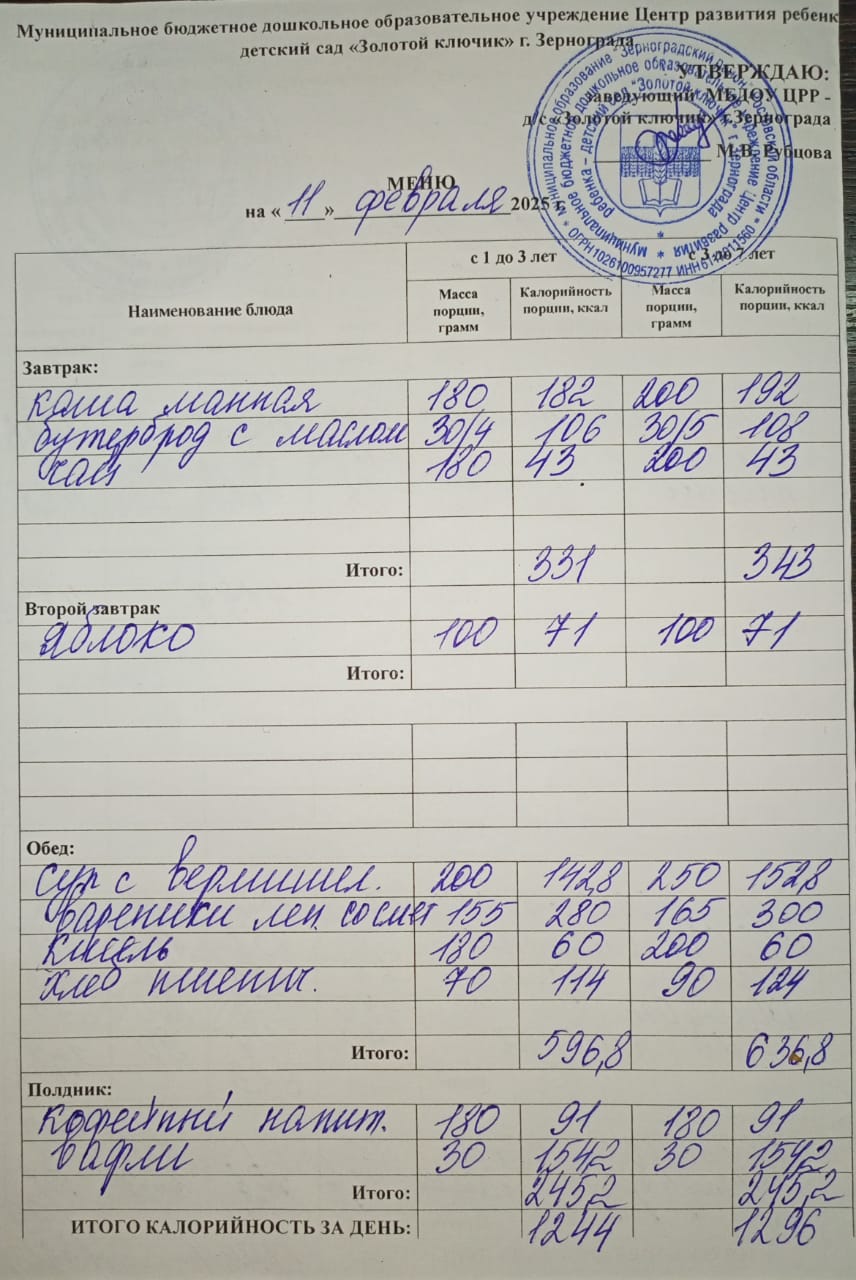 Муниципальное бюджетное дошкольное образовательное учреждение Центр развития ребенк
детский сад «Золотой ключик» г. Зернограда
УТВЕРЖДАЮ:
заведующий МБДОУ ЦРР -
д/с «Золотой ключик» г.Зернограда
М.В. Рубцова
МЕНЮ
на « 11 » февраля 2025 г.
Наименование блюда
с 1 до 3 лет с 3 до 7 лет
Масса порции, грамм Калорийность порции, ккал Масса порции, грамм Калорийность порции, ккал
Завтрак:
каша манная 180 182 200 192
бутерброд с маслом 30/4 106 30/5 108
чай 180 43 200 43
Итого: 331 343
Второй завтрак
яблоко 100 71 100 71
Итого:
Обед:
суп с вермишел. 200 142,8 250 152,8
вареники лен. со смет 155 280 165 300
кисель 180 60 200 60
хлеб пшенич. 70 114 90 124
Итого: 596,8 636,8
Полдник:
кофейный напит. 180 91 180 91
вафли 30 154,2 30 154,2
Итого: 245,2 245,2
ИТОГО КАЛОРИЙНОСТЬ ЗА ДЕНЬ: 1244 1296